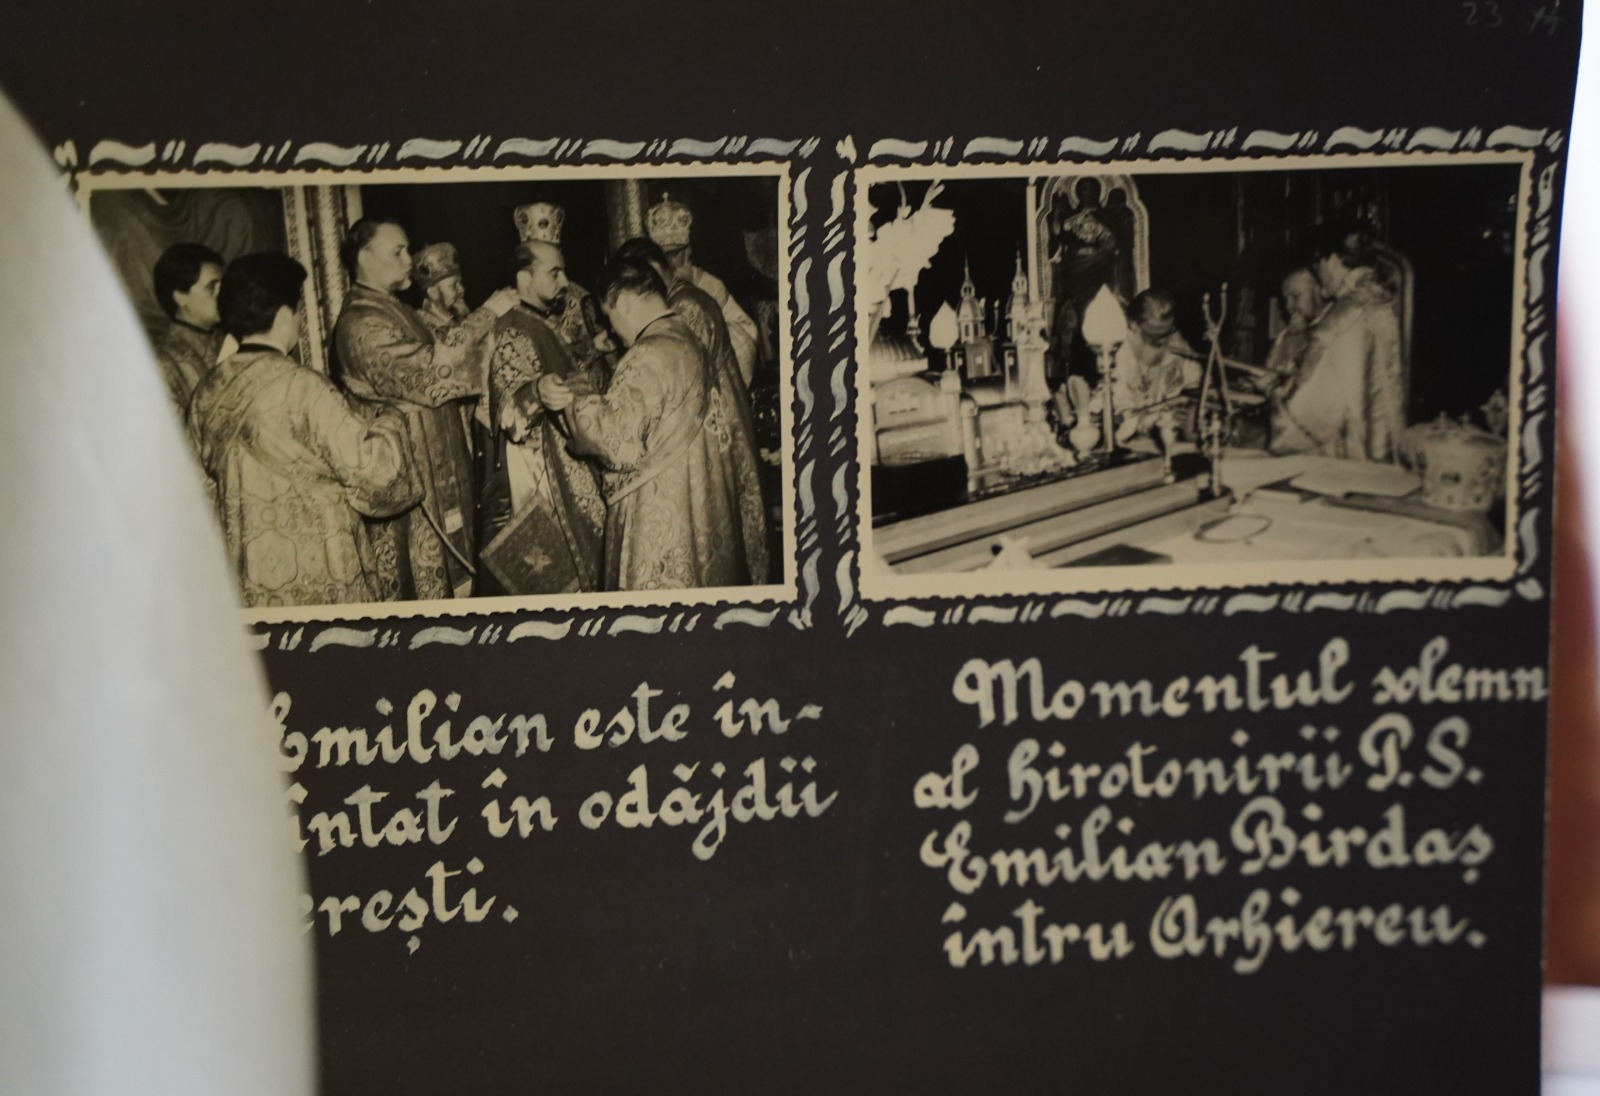 23
Emilian este în-
întat în odăjdii
erești.
Momentul solemn
al hirotonirii P.S.
Emilian Birdaș
întru Arhiereu.